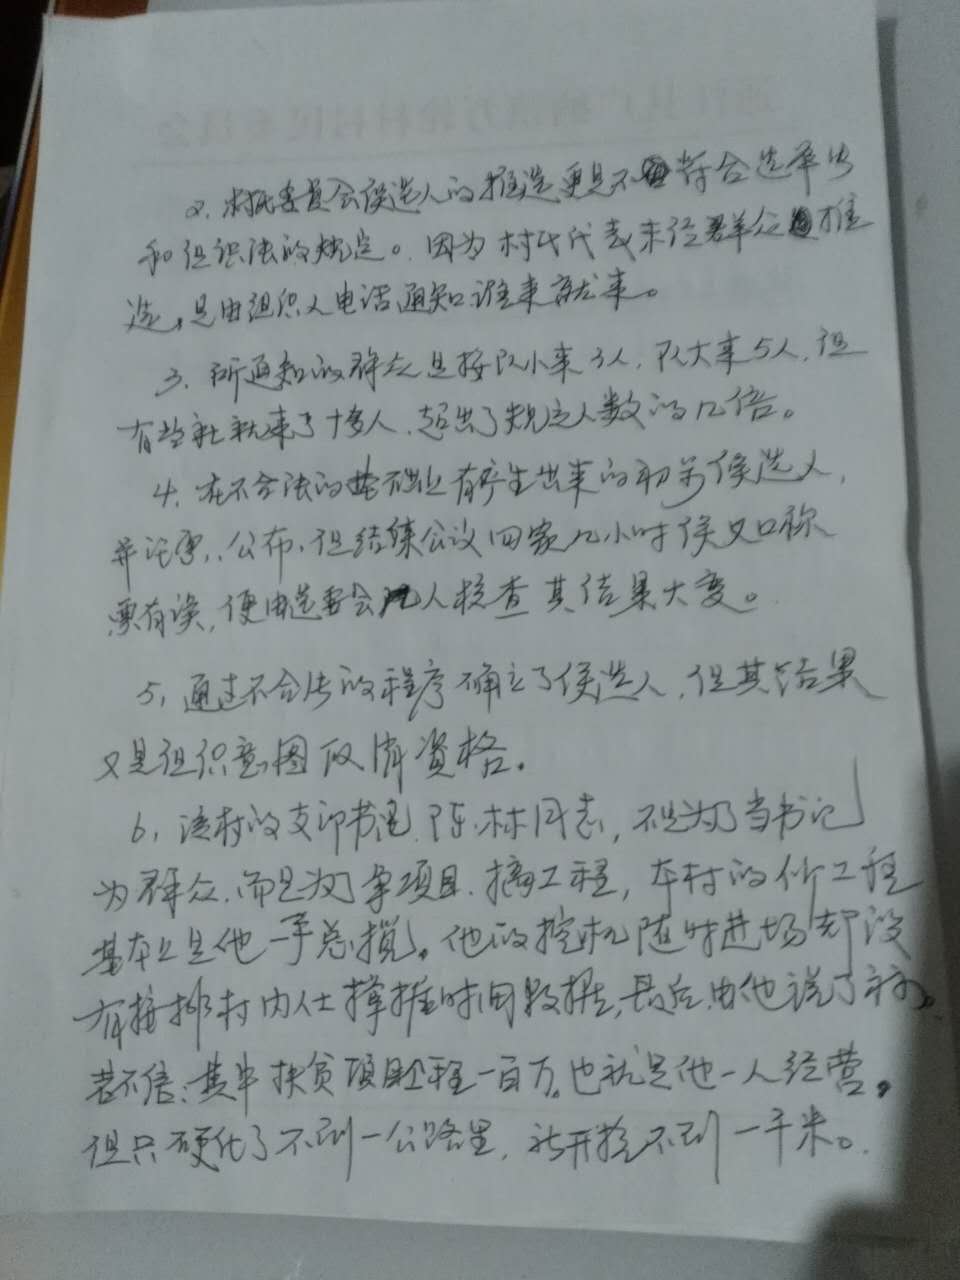 2、村民委员会侯选人的推选更是不符合选举法
和组织法的规定。因为村民代表未经群众推
选,是由组织人电话通知谁来就来。
3、所通知的群众是按队小来3人,队大来5人,但
有些社就来了十多人,超出了规定人数的几倍。
4、在不合法的基础上有产生出来的初步侯选人,
并公布,但结束会议回家几小时侯又口称
票有误,便由选委会几人核查其结果大变。
5、通过不合法的程序确立了侯选人,但其结果
又是组织意图取消资格。
6、该村的支部书记陈林同志,不是为了当书记
为群众,而是为了拿项目、搞工程,本村的所工程
基本上是他一手总揽。他的挖机随时进场却没
有按排村内人掌握时间数据,最后由他说了称。
若不信:其中扶贫项目工程一百万。也就是他一人经营。
但只硬化了不到一公路里,新开挖不到一千米。